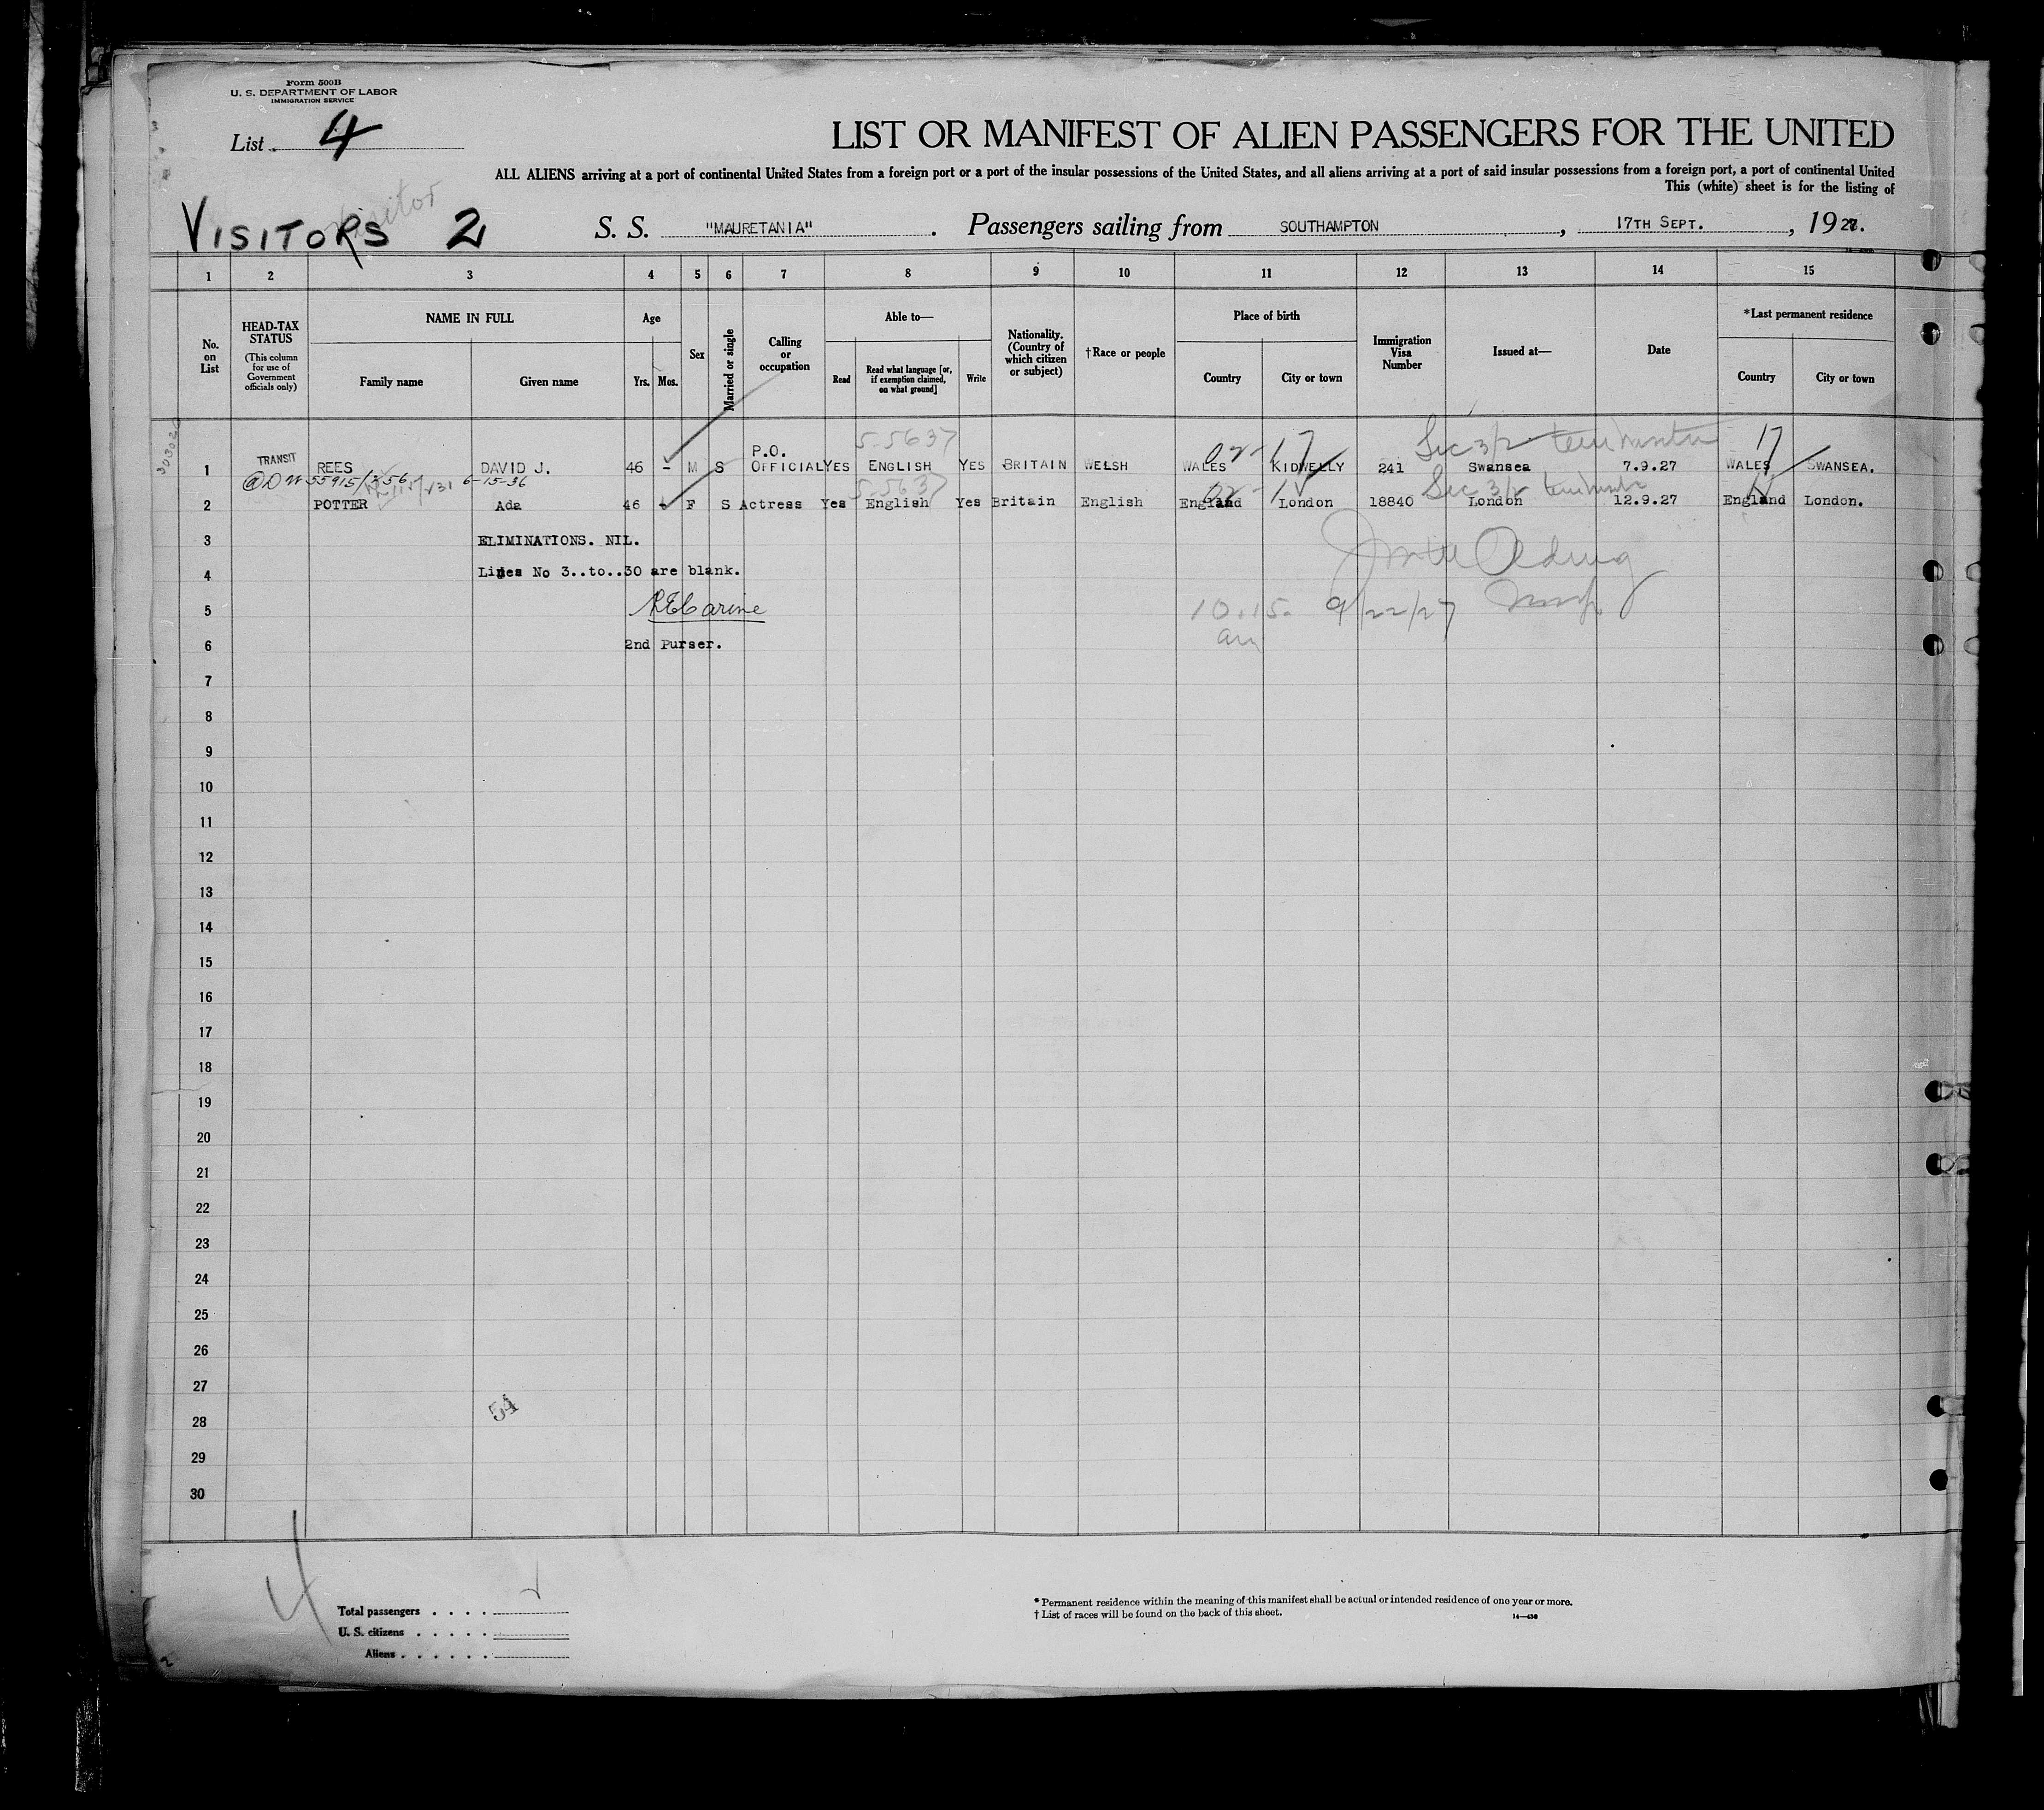 Form 500B
U. S. DEPARTMENT OF LABOR
IMMIGRATION SERVICE
List 4
LIST OR MANIFEST OF ALIEN PASSENGERS FOR THE UNITED
ALL ALIENS arriving at a port of continental United States from a foreign port or a port of the insular possessions of the United States, and all aliens arriving at a port of said insular possessions from a foreign port, a port of continental United
This (white) sheet is for the listing of
Visitor
VISITORS 2 S. S. "MAURETANIA". Passengers sailing from SOUTHAMPTON, 17TH SEPT., 1927.
1 2 3 4 5 6 7 8 9 10 11 12 13 14 15
No. on List
HEAD-TAX STATUS (This column for use of Government officials only)
NAME IN FULL
Family name Given name
Age
Yrs. Mos.
Sex
Married or single
Calling or occupation
Able to—
Read Read what language [or, if exemption claimed, on what ground] Write
Nationality. (Country of which citizen or subject)
†Race or people
Place of birth
Country City or town
Immigration Visa Number
Issued at—
Date
*Last permanent residence
Country City or town
303020
5-5637 02-17 Sec 3/2 17
1 TRANSIT REES DAVID J. 46 - M S P.O. OFFICIAL YES ENGLISH YES BRITAIN WELSH WALES KIDWELLY 241 Swansea 7.9.27 WALES SWANSEA.
55915/356 6-15-36
5-5637 Sec 3/2
2 POTTER Ada 46 F S Actress Yes English Yes Britain English England London 18840 London 12.9.27 England London.
3 ELIMINATIONS. NIL.
4 Lines No 3..to..30 are blank.
5 10.15 9/22/27
am
6 2nd Purser.
7
8
9
10
11
12
13
14
15
16
17
18
19
20
21
22
23
24
25
26
27
54
28
29
30
4
Total passengers
U. S. citizens
Aliens
* Permanent residence within the meaning of this manifest shall be actual or intended residence of one year or more.
† List of races will be found on the back of this sheet.
14—430
2